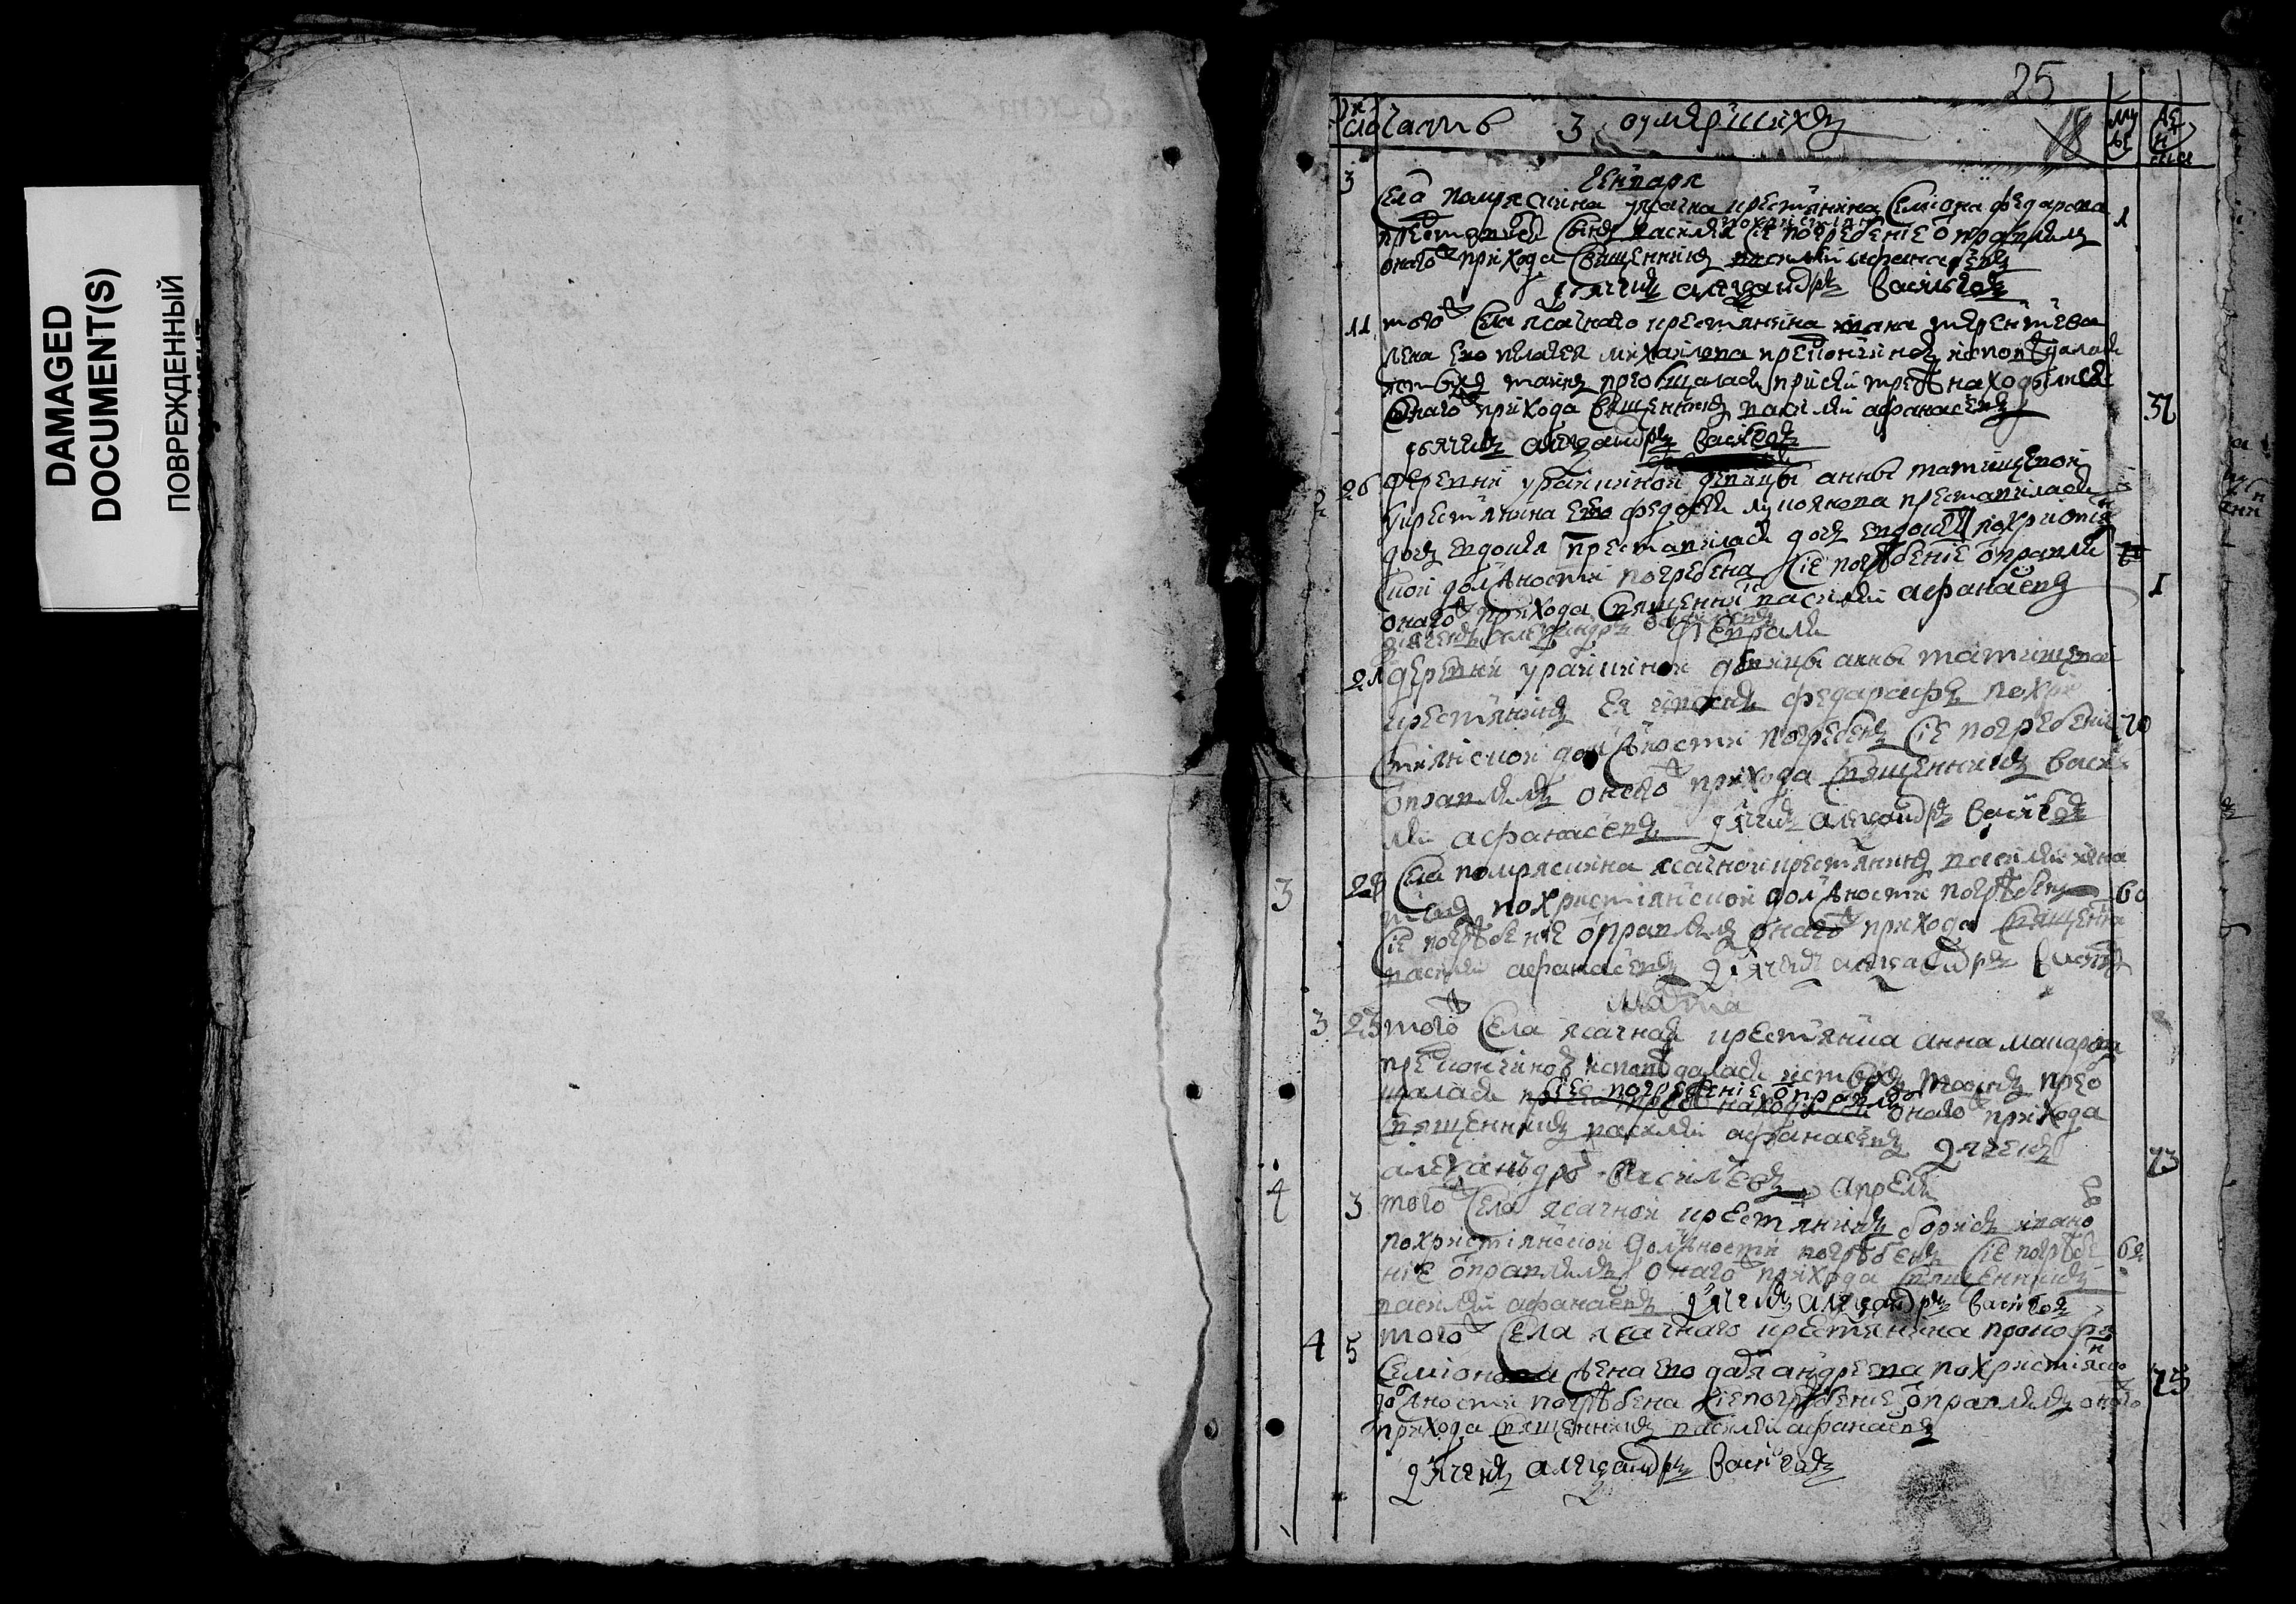 DAMAGED
DOCUMENT(S)
ПОВРЕЖДЕННЫЙ
25
число часть 3 о умерших 18
генваря
3 села помряскина ясачна крестьянина семиона федарова 1
преставися сынъ василей сие погребение отправлялъ
оного ж прихода священникъ василий афанасевъ
дьячекъ александръ васильевъ
11 того ж села ясачнаго крестьянина ивана терентьева
жена ево пелагея михайлова при кончине исповедалась
и святыхъ таинъ преобщалась при сей требе находились
оного ж прихода священникъ василий афанасевъ 37
дьячекъ александръ васильевъ
26 деревни урайкиной девицы анны татищевой
крестьянина ево федосея лукоянова преставилась
дочь евдокея преставилась дочь евдокея по христиан
ской должности погребена сие погребение отправлял 1
оного ж прихода священник василий афанасевъ
дьячекъ александръ васильевъ февраля
21 деревни урайкиной девицы анны татищевой
крестьянинъ ея федарафъ по хри
стиянской должности погребенъ сие погребение 70
отправлялъ оного ж прихода священникъ васи
лей афанасевъ дьячекъ александръ васильевъ
3 28 села помряскина ясачной крестьянинъ василей ива
по християнской должности погребенъ 60
сие погребение отправлялъ оного ж прихода священник
василий афанасевъ дьячекъ александръ васильевъ
марта
3 23 того ж села ясачная крестьянка анна макарова
при кончине исповедалась и святыхъ таинъ прео
щалась сие погребение отправлял оного ж прихода
священникъ василий афанасевъ дьячекъ 73
александръ василевъ апреля
4 3 того ж села ясачной крестьянинъ борисъ ивано
по християнской должности погребенъ сие погребе 62
ние отправлялъ оного ж прихода священникъ
василий афанасевъ дьячекъ александръ васильевъ
4 5 того ж села ясачнаго крестьянина
семионова жена ево дарья андреева по християнско 75
должности погребена сие погребение отправлялъ оного
прихода священникъ василий афанасевъ
дьячекъ александръ васильевъ